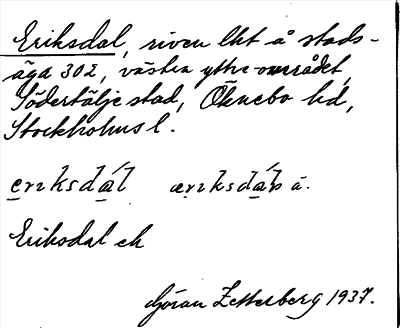 Eriksdal, riven lht å stads-
äga 302, västra yttre området,
Södertälje stad, Öknebo hd,
Stockholms l.
eriksdál æriksdáls ä.
Eriksdal ek
Göran Zetterberg 1937.